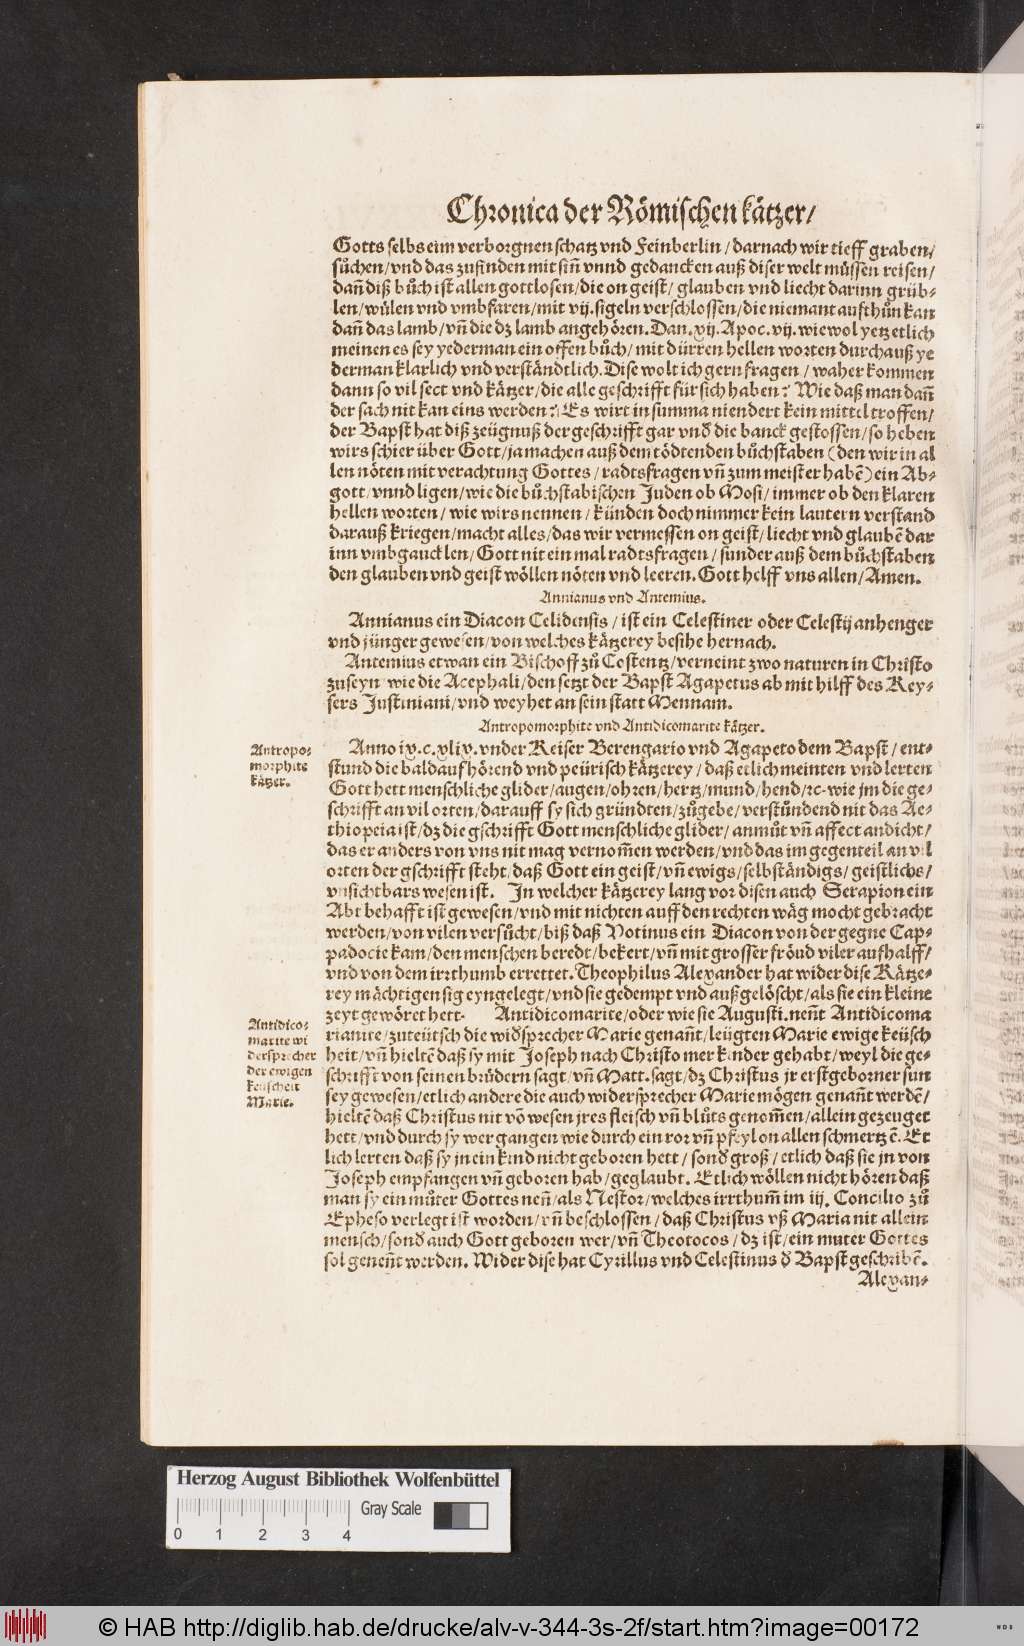 Chronica der Römischen kätzer/
Gotts selbs eim verborgnen schatz vnd Feinberlin/darnach wir tieff graben/
sůchen/vnd das zufinden mit sin̄ vnnd gedancken auß diser welt müssen reisen/
dan̄ diß bůch ist allen gottlosen/die on geist/glauben vnd liecht darinn grüb-
len/wülen vnd vmbfaren/mit vij.sigeln verschlossen/die niemant aufthůn kan
dan̄ das lamb/vn̄ die dz lamb angehören.Dan.xij.Apoc.vij.wiewol yetz etlich
meinen es sey yederman ein offen bůch/mit dürren hellen worten durchauß ye
derman klarlich vnd verständtlich.Dise wolt ich gern fragen/waher kommen
dann so vil sect vnd kätzer/die alle geschrifft für sich haben? Wie daß man dan̄
der sach nit kan eins werden? Es wirt in summa niendert kein mittel troffen/
der Bapst hat diß zeügnuß der geschrifft gar vnd̄ die banck gestossen/so heben
wirs schier über Gott/ja machen auß dem tödtenden bůchstaben (den wir in al
len nöten mit verachtung Gottes/radtsfragen vn̄ zum meister habē) ein Ab-
gott/vnnd ligen/wie die bůchstabischen Juden ob Mosi/immer ob den klaren
hellen worten/wie wirs nennen/künden doch nimmer kein lautern verstand
darauß kriegen/macht alles/das wir vermessen on geist/liecht vnd glaubē dar
inn vmbgaucklen/Gott nit ein mal radtsfragen/sunder auß dem bůchstaben
den glauben vnd geist wöllen nöten vnd leeren.Gott helff vns allen/Amen.
Annianus vnd Antemius.
Annianus ein Diacon Celidensis/ist ein Celestiner oder Celestij anhenger
vnd jünger gewesen/von welches kätzerey besihe hernach.
Antemius etwan ein Bischoff zů Costentz/verneint zwo naturen in Christo
zuseyn/wie die Acephali/den setzt der Bapst Agapetus ab mit hilff des Key-
sers Justiniani/vnd weyhet an sein statt Mennam.
Antropomorphite vnd Antidicomarite kätzer.
Antropo-
morphite
kätzer.
Anno ix.c.xlix.vnder Keiser Berengario vnd Agapeto dem Bapst/ent-
stund die bald aufhörend vnd peürisch kätzerey/daß etlich meinten vnd lerten
Gott hett menschliche glider/augen/ohren/hertz/mund/hend/ꝛc.wie jm die ge-
schrifft an vil orten/darauff sy sich gründten/zůgebe/verstündend nit das Ae-
thiopeia ist/dz die gschrifft Gott menschliche glider/anmůt vn̄ affect andicht/
das er anders von vns nit mag vernom̄en werden/vnd das im gegenteil an vil
orten der gschrifft steht/daß Gott ein geist/vn̄ ewigs/selbständigs/geistlichs/
vnsichtbars wesen ist. In welcher kätzerey lang vor disen auch Serapion ein
Abt behafft ist gewesen/vnd mit nichten auff den rechten wäg mocht gebracht
werden/von vilen versůcht/biß daß Notinus ein Diacon von der gegne Cap-
padocie kam/den menschen beredt/bekert/vn̄ mit grosser fröud viler aufhalff/
vnd von dem irrthumb errettet.Theophilus Alexander hat wider dise Kätze-
rey mächtigen sig eyngelegt/vnd sie gedempt vnd außgelöscht/als sie ein kleine
zeyt gewöret hett. Antidicomarite/oder wie sie Augusti.nen̄t Antidicoma
Antidico-
marite wi
dersprecher
der ewigen
keuscheit
Marie.
rianite/zuteütsch die wid̄sprecher Marie genan̄t/leügten Marie ewige keüsch
heit/vn̄ hieltē daß sy mit Joseph nach Christo mer kinder gehabt/weyl die ge-
schrifft von seinen brüdern sagt/vn̄ Matt.sagt/dz Christus jr erstgeborner sun
sey gewesen/etlich andere die auch widersprecher Marie mögen genan̄t werdē/
hieltē daß Christus nit vō wesen jres fleisch vn̄ blůts genom̄en/allein gezeuget
hett/vnd durch sy wer gangen wie durch ein ror vn̄ pfeyl on allen schmertzē.Et
lich lerten daß sy jn ein kind nicht geboren hett/sond̄ groß/etlich daß sie jn von
Joseph empfangen vn̄ geboren hab/geglaubt.Etlich wöllen nicht hören daß
man sy ein můter Gottes nen̄/als Nestor/welches irrthum̄ im iij. Concilio zů
Epheso verlegt ist worden/vn̄ beschlossen/daß Christus vß Maria nit allein
mensch/sond̄ auch Gott geboren wer/vn̄ Theotocos/dz ist/ein muter Gottes
sol genen̄t werden.Wider dise hat Cyrillus vnd Celestinus d̄ Bapst geschribē.
Alexan-
Herzog August Bibliothek Wolfenbüttel
Gray Scale
0 1 2 3 4
© HAB http://diglib.hab.de/drucke/alv-v-344-3s-2f/start.htm?image=00172